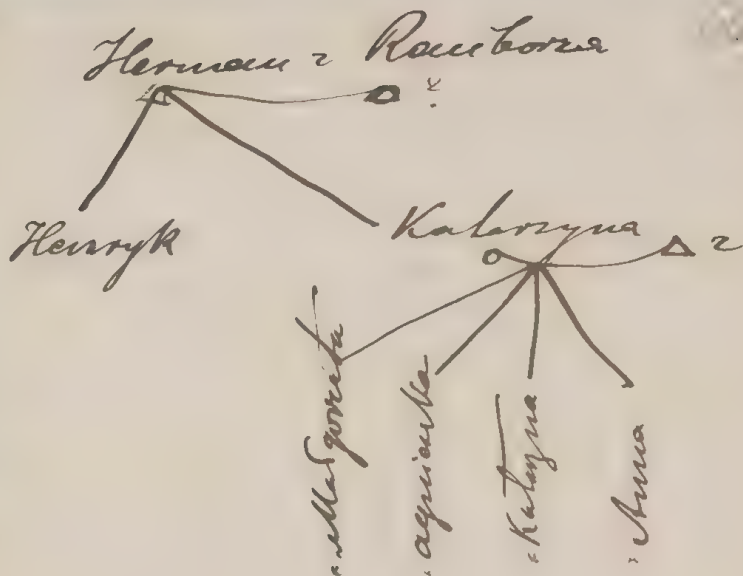 Herman z Ramborza
x
Henryk
Katarzyna
z
Małgorzata
Agnieszka
Katarzyna
Anna